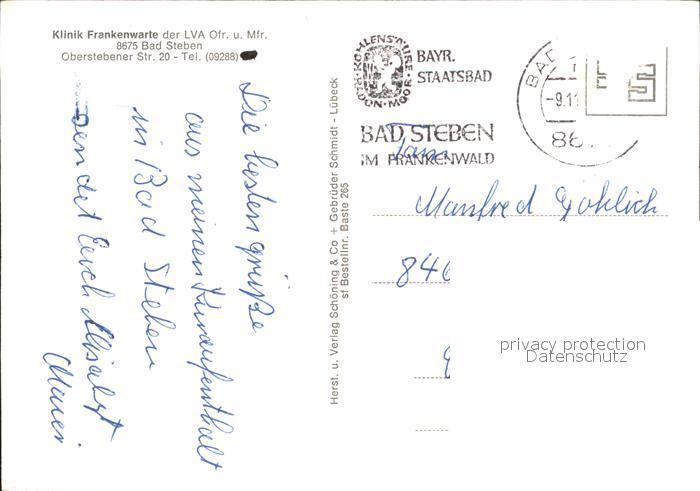 Klinik Frankenwarte der LVA Ofr. u. Mfr.
8675 Bad Steben
Oberstebener Str. 20 - Tel. (09288)
Die besten Grüße
aus meinen Kuraufenthalt
in Bad Steben
sendet Euch
Maier
Herst. u. Verlag Schöning & Co + Gebrüder Schmidt - Lübeck
sf Bestellnr. Baste 265
KOHLENSÄURE
RADON·MOOR
BAYR.
STAATSBAD
BAD STEBEN
IM FRANKENWALD
BAD
-9.11
86
Fam
Manfred Gohlich
846
privacy protection
Datenschutz